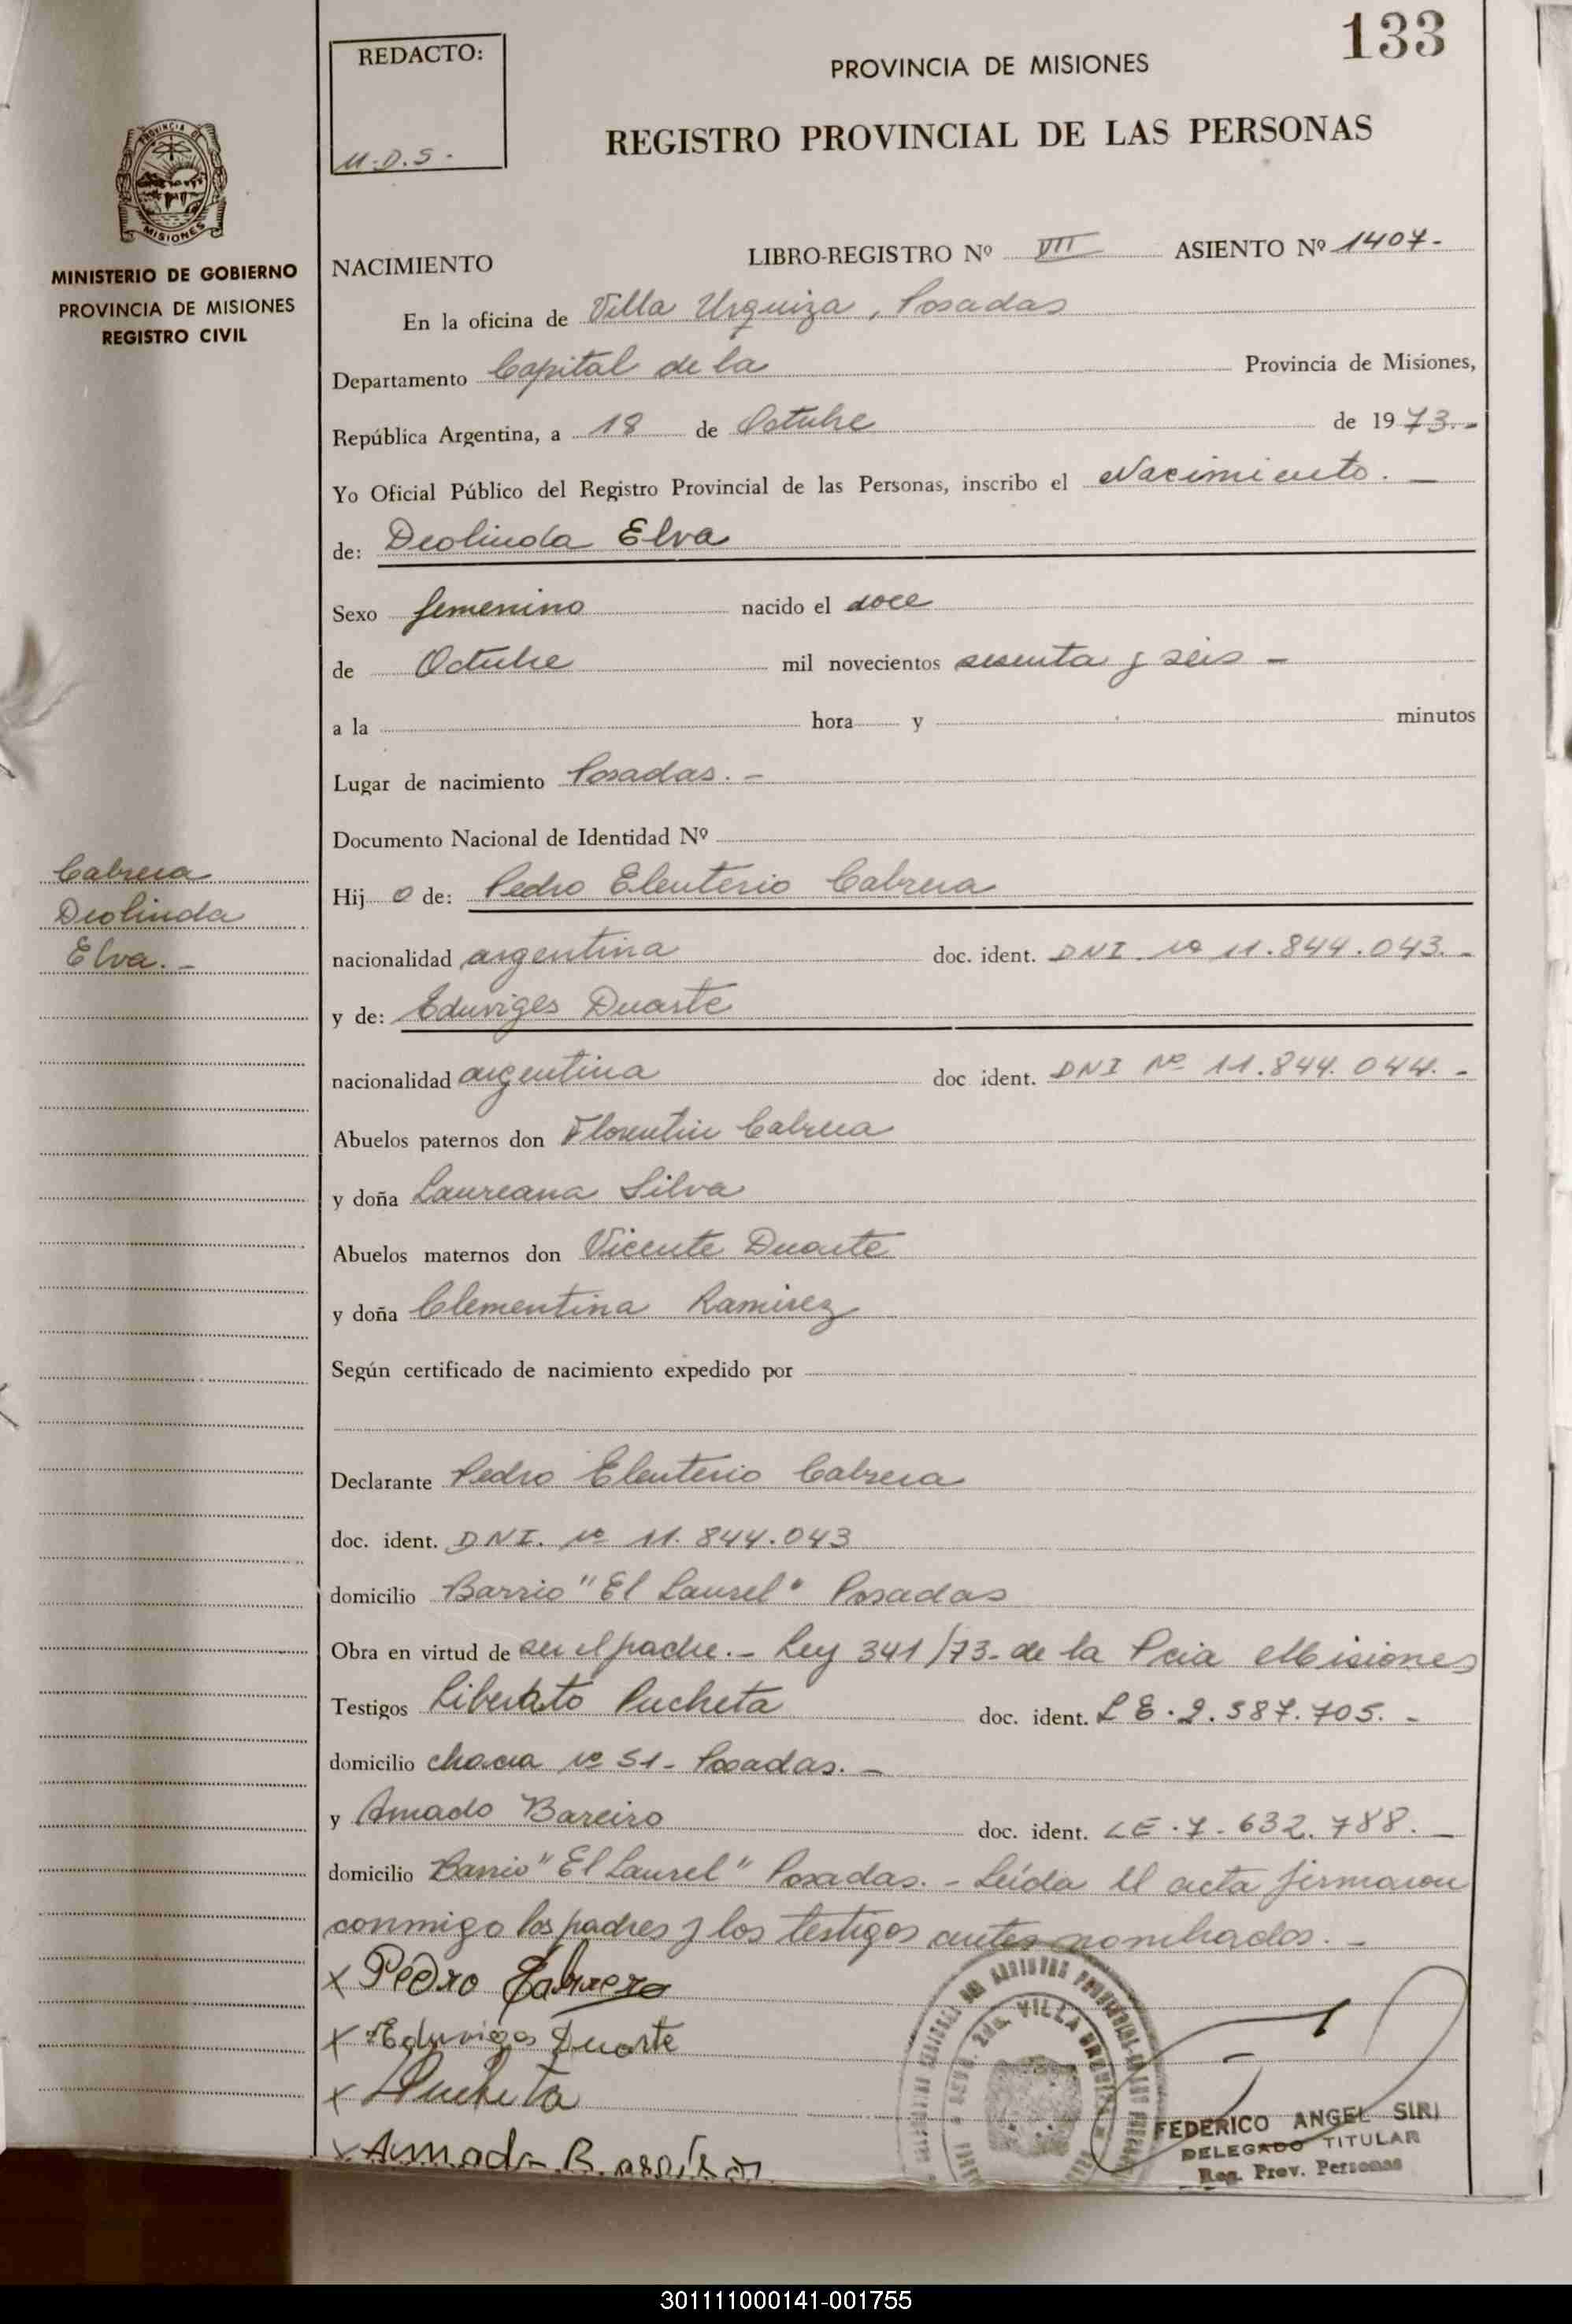 133
REDACTO:
M.D.S.-
PROVINCIA DE MISIONES
REGISTRO PROVINCIAL DE LAS PERSONAS
PROVINCIA DE
MISIONES
MINISTERIO DE GOBIERNO
PROVINCIA DE MISIONES
REGISTRO CIVIL
NACIMIENTO LIBRO-REGISTRO Nº VII ASIENTO Nº 1407-
En la oficina de Villa Urquiza, Posadas
Departamento Capital de la Provincia de Misiones,
República Argentina, a 18 de Octubre de 1973.-
Yo Oficial Público del Registro Provincial de las Personas, inscribo el Nacimiento. -
de: Deolinda Elva
Sexo femenino nacido el doce
de Octubre mil novecientos sesenta y seis -
a la hora y minutos
Lugar de nacimiento Posadas. -
Documento Nacional de Identidad Nº
Cabrera
Deolinda
Elva. -
Hij o de: Pedro Eleuterio Cabrera
nacionalidad argentina doc. ident. DNI Nº 11.844.043.-
y de: Eduviges Duarte
nacionalidad argentina doc ident. DNI Nº 11.844.044.-
Abuelos paternos don Florentin Cabrera
y doña Laureana Silva
Abuelos maternos don Vicente Duarte
y doña Clementina Ramirez
Según certificado de nacimiento expedido por
Declarante Pedro Eleuterio Cabrera
doc. ident. DNI. Nº 11.844.043
domicilio Barrio "El Laurel" Posadas
Obra en virtud de ser el padre.- Ley 341/73- de la Pcia Misiones
Testigos Liberato Pucheta doc. ident. LE.2.587.705.-
domicilio chacra Nº 51- Posadas. -
y Amado Bareiro doc. ident. LE.7.632.788. -
domicilio Barrio "El Laurel" Posadas. - Leída el acta firmaron
conmigo los padres y los testigos antes nombrados. -
x Pedro Cabrera
x Eduviges Duarte
x Pucheta
x Amado Bareiro
VILLA URQUIZA
FEDERICO ANGEL SIRI
DELEGADO TITULAR
Reg. Prov. Personas
301111000141-001755